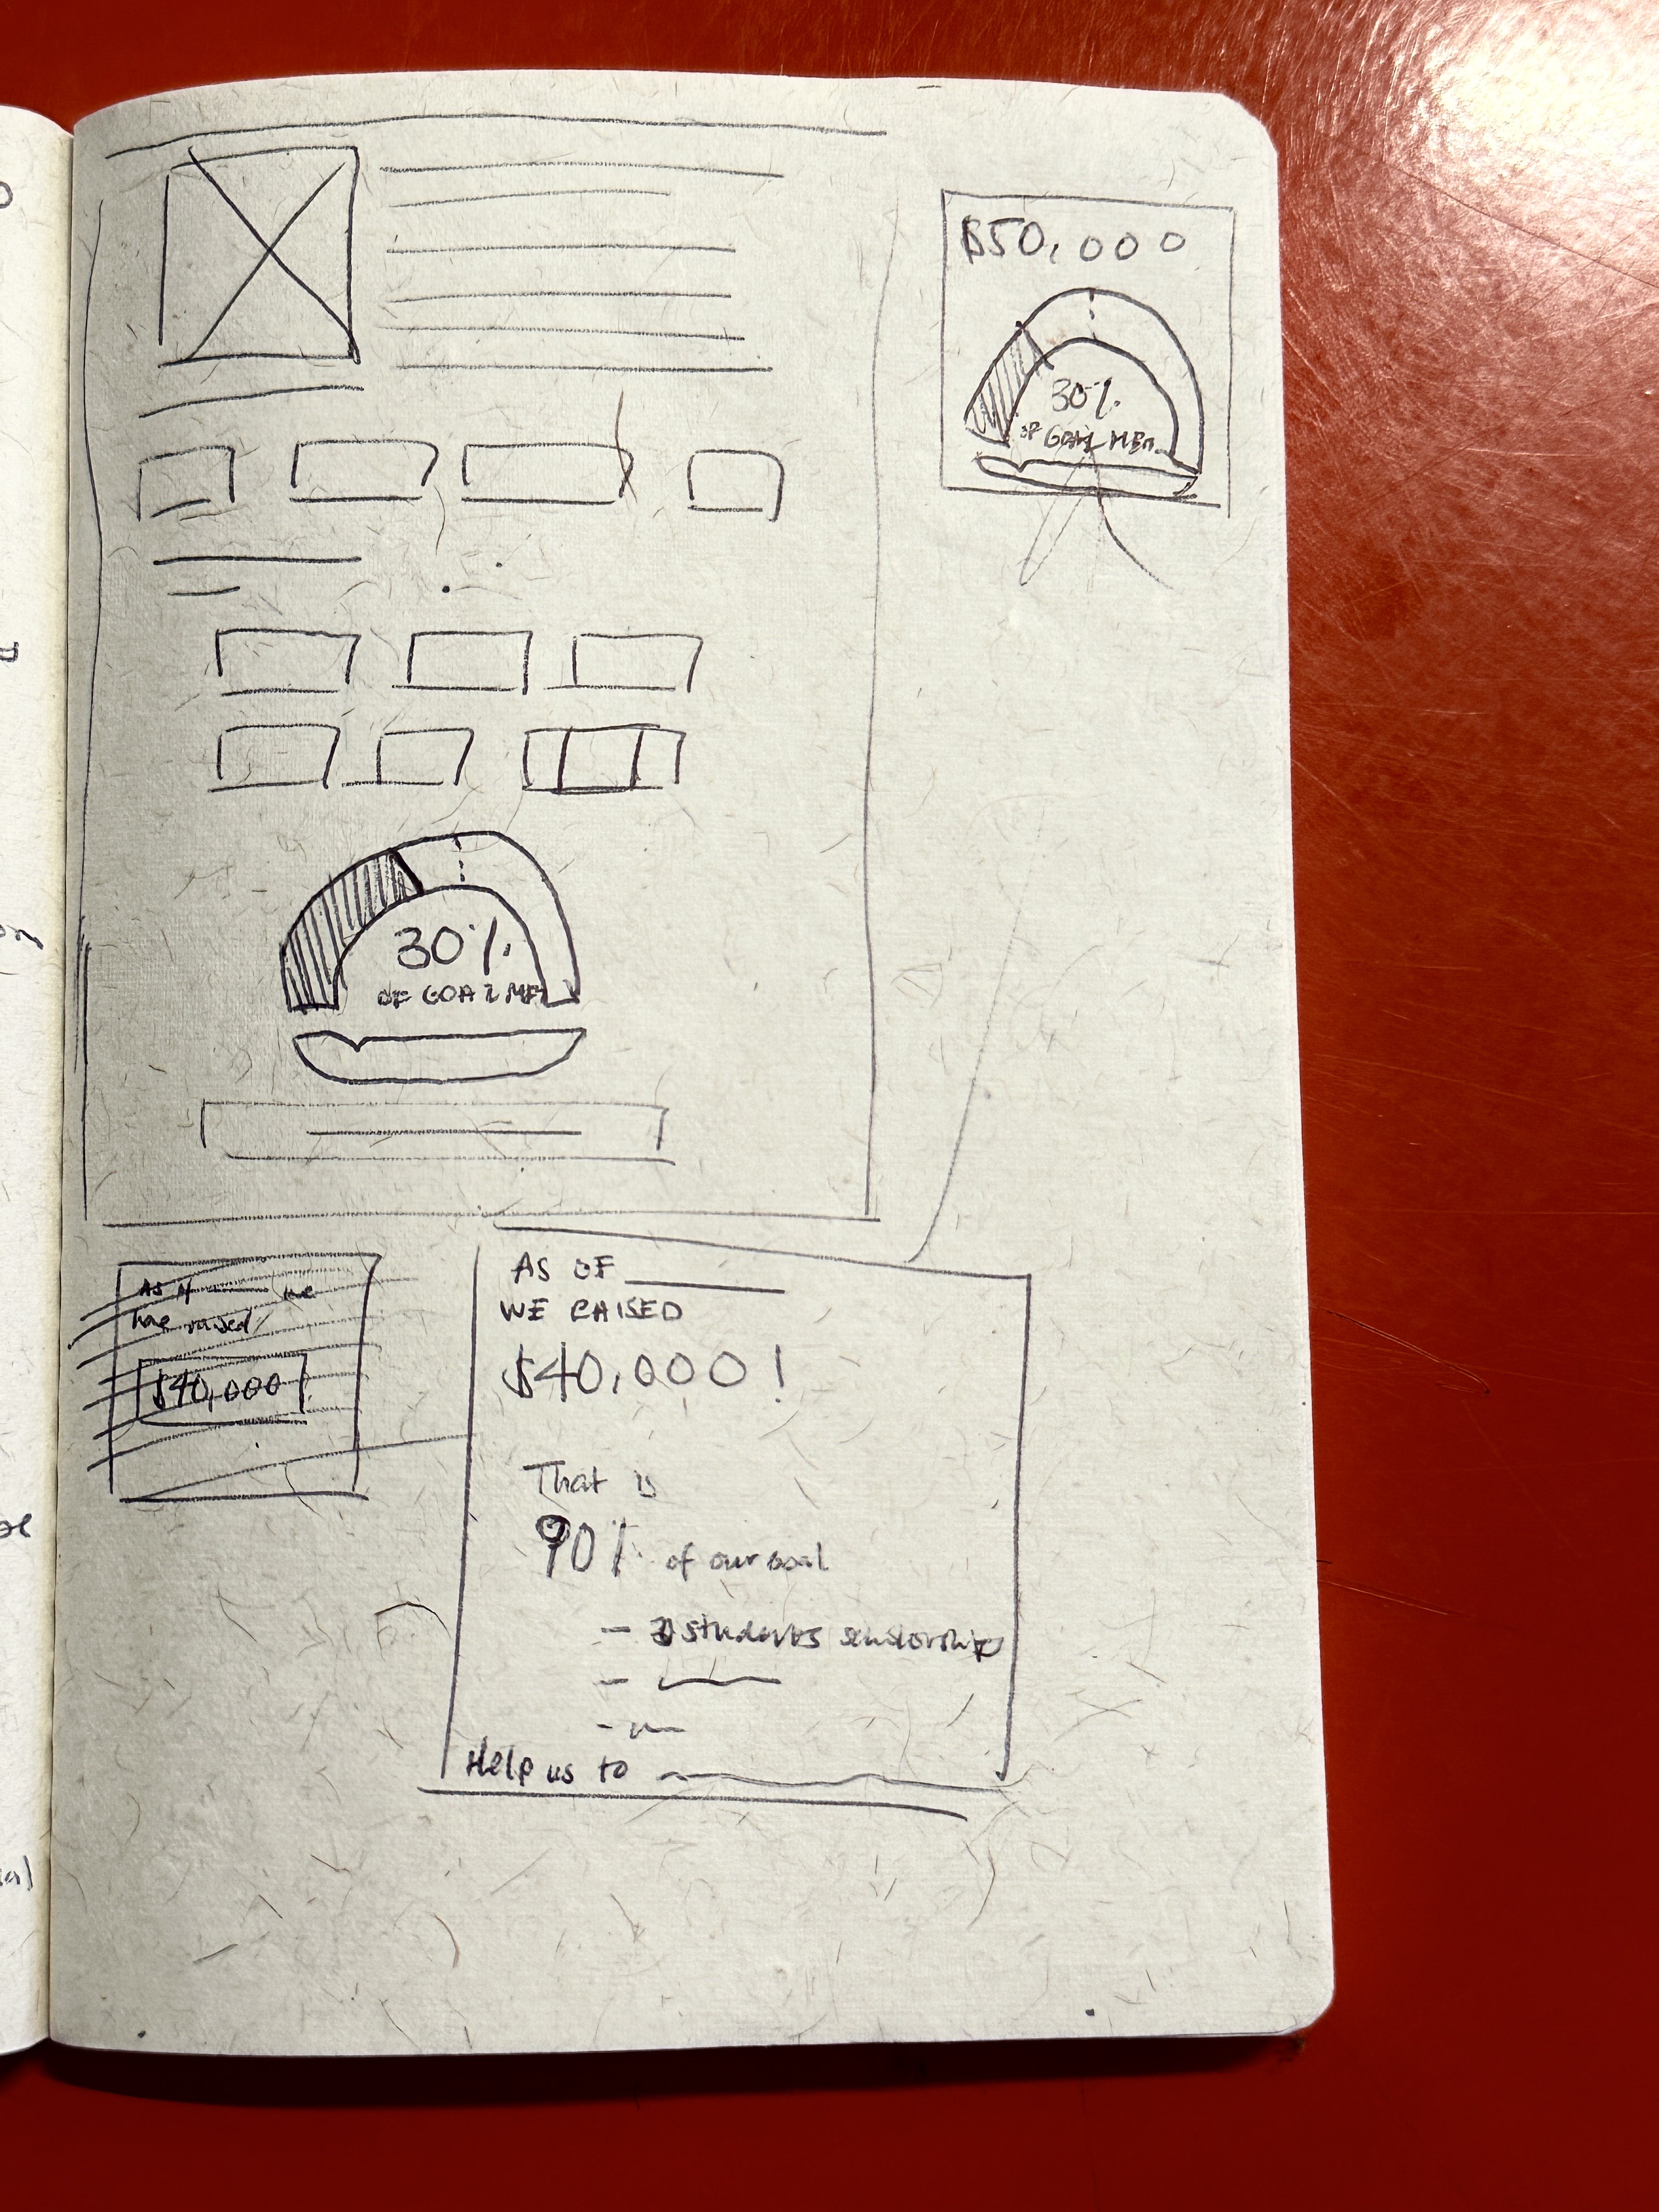 $50,000
30%
OF GOAL MET
30%
OF GOAL MET
As of we
have raised
$40,000
AS OF
WE RAISED
$40,000!
That is
90% of our goal
- students scholarships
Help us to